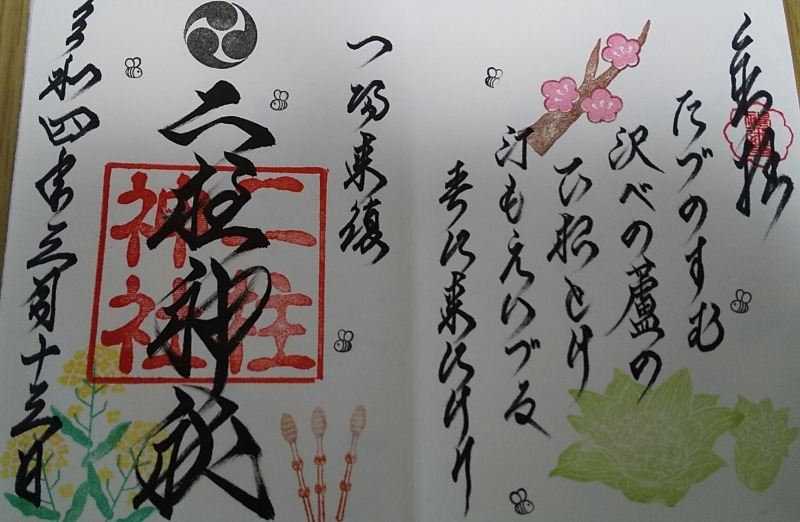 奉拝
たづのすむ
沢べの蘆の
下根とけ
汀もえいづる
春は来にけり
一陽来復
二柱神社
二柱
神社
令和四年三月十三日